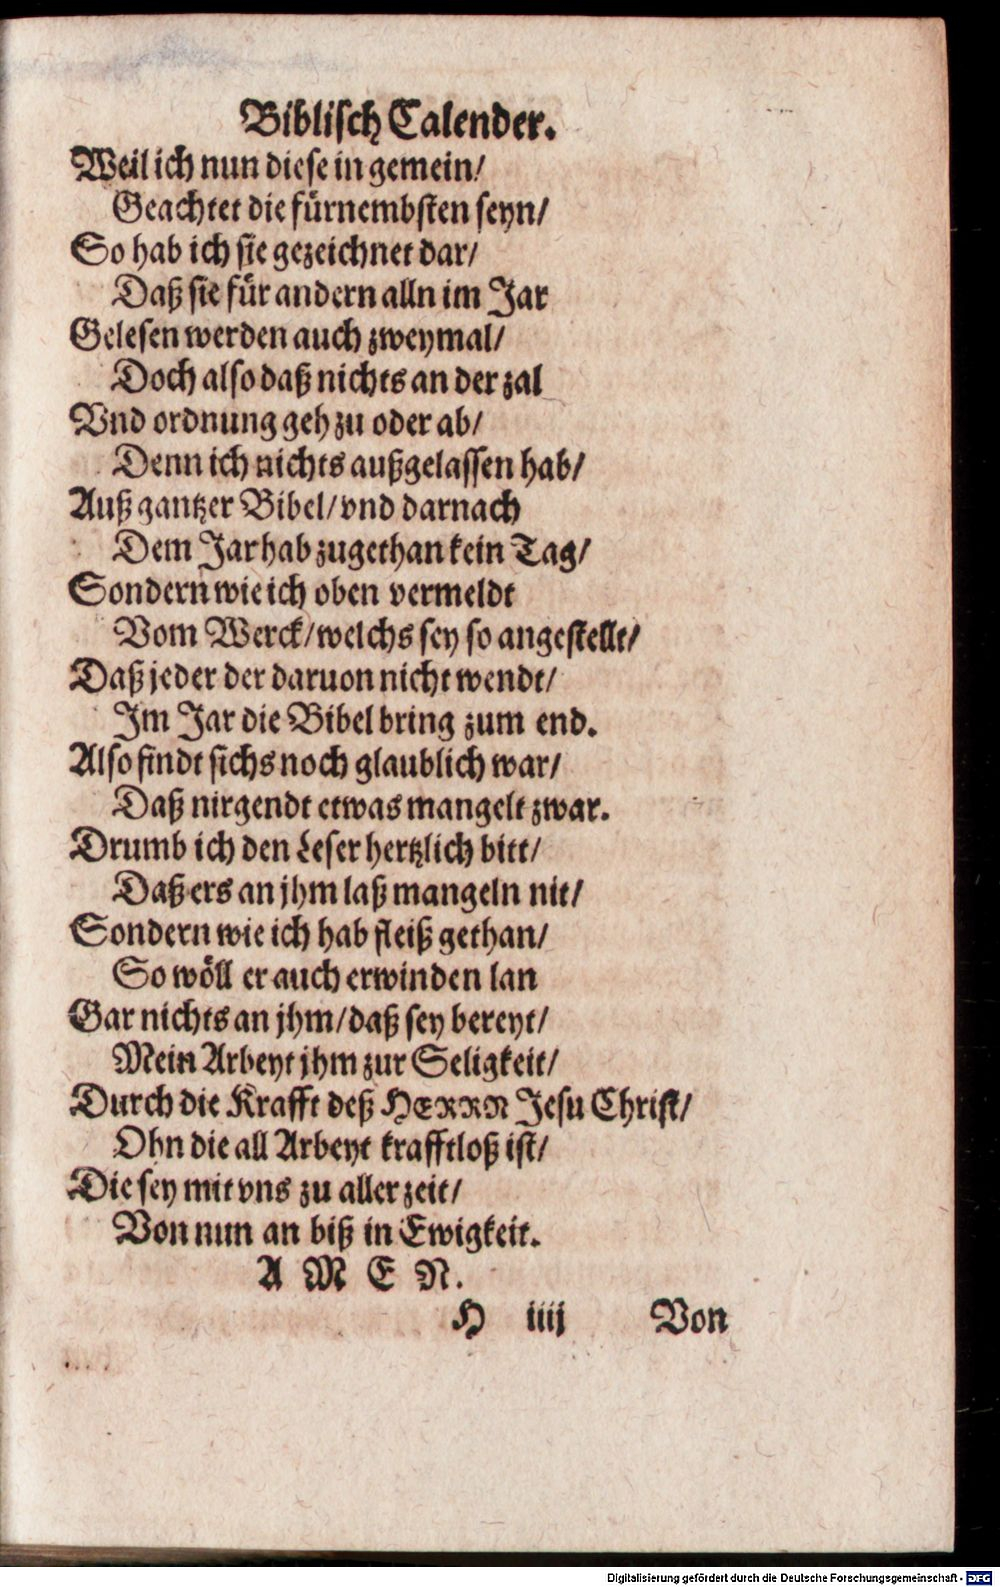 Biblisch Calender.
Weil ich nun diese in gemein/
Geachtet die fürnembsten seyn/
So hab ich sie gezeichnet dar/
Daß sie für andern alln im Jar
Gelesen werden auch zweymal/
Doch also daß nichts an der zal
Vnd ordnung geh zu oder ab/
Denn ich nichts außgelassen hab/
Auß gantzer Bibel/vnd darnach
Dem Jar hab zugethan kein Tag/
Sondern wie ich oben vermeldt
Vom Werck/welchs sey so angestellt/
Daß jeder der daruon nicht wendt/
Im Jar die Bibel bring zum end.
Also findt sichs noch glaublich war/
Daß nirgendt etwas mangelt zwar.
Drumb ich den Leser hertzlich bitt/
Daß ers an jhm laß mangeln nit/
Sondern wie ich hab fleiß gethan/
So wöll er auch erwinden lan
Gar nichts an jhm/daß sey bereyt/
Mein Arbeyt jhm zur Seligkeit/
Durch die Krafft deß HERRN Jesu Christ/
Ohn die all Arbeyt krafftloß ist/
Die sey mit vns zu aller zeit/
Von nun an biß in Ewigkeit.
A M E N.
H iiij Von
Digitalisierung gefördert durch die Deutsche Forschungsgemeinschaft - DFG